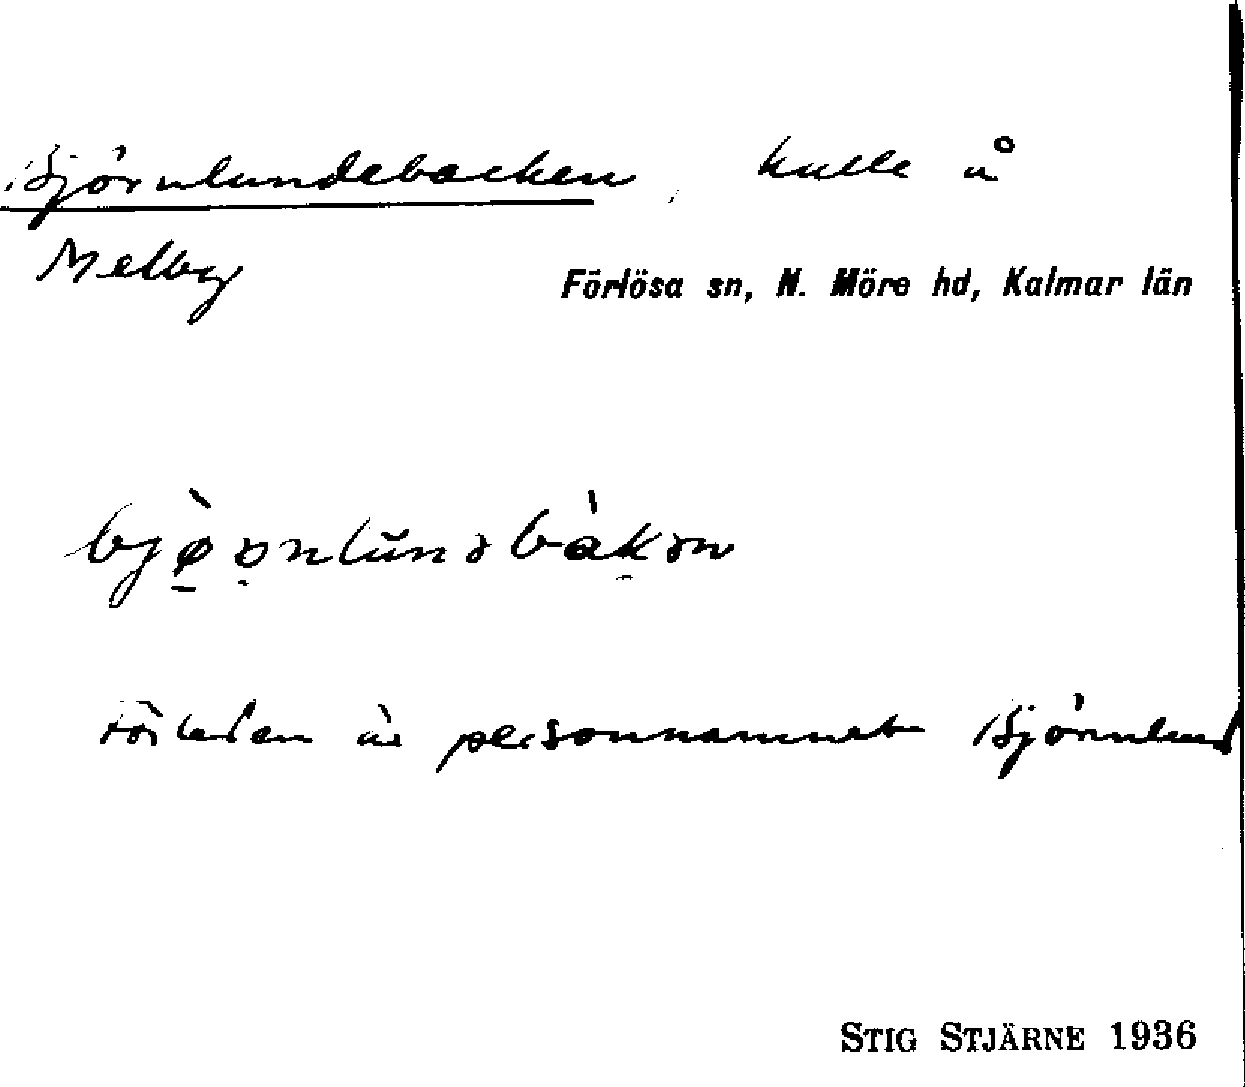 Björnlundebacken, kulle å
Melby
Förlösa sn, N. Möre hd, Kalmar län
Förleden är personnamnet Björnlund
STIG STJÄRNE 1936